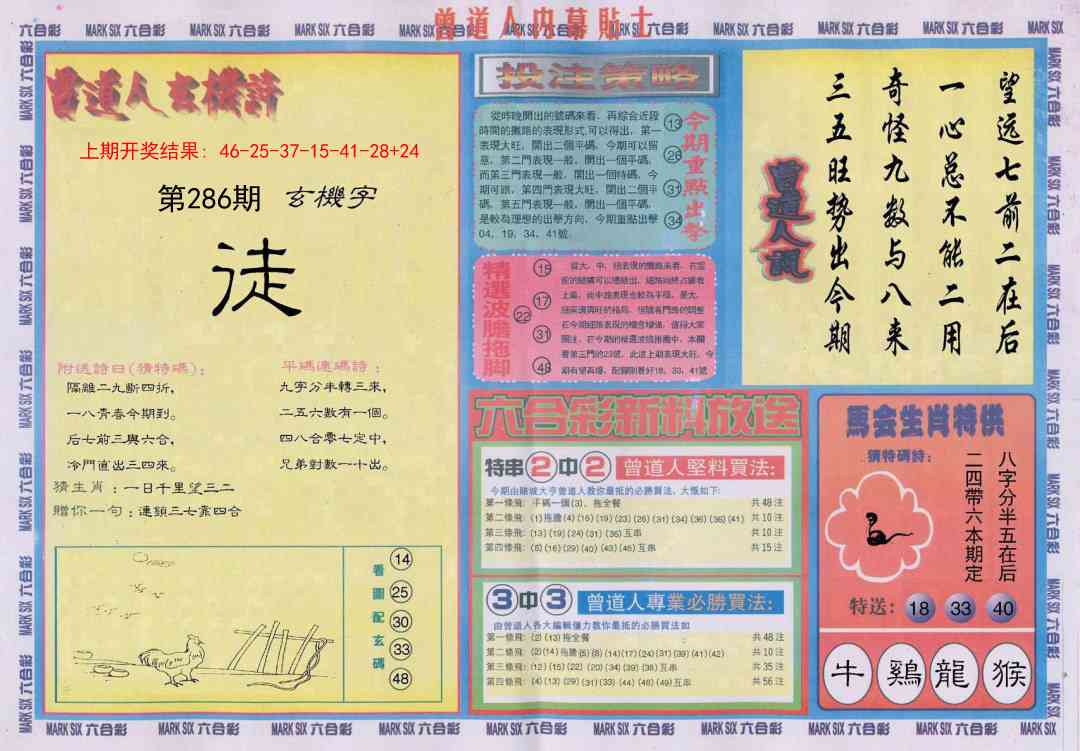 六合彩 MARK SIX 六合彩 MARK SIX 六合彩 MARK SIX 六合彩 MARK SIX 六合彩 MARK SIX 六合彩 MARK SIX
曾道人内幕貼士
曾道人玄機詩
上期开奖结果: 46-25-37-15-41-28+24
第286期 玄機字
徒
附送詩曰(猜特碼):
隔離二九斷四折,
一八青春今期到。
后七前三與六合,
冷門直出三四來。
平碼連碼詩:
九字分半轉三來,
二五六數有一個。
四八合零七定中,
兄弟對數一十出。
猜生肖:一日千里望三二
贈你一句:連鎖三七靠四合
看圖配玄碼
14
25
30
33
48
投注策略
從昨晚開出的號碼來看,再綜合近段
時間的攤路的表現形式,可以得出,第一
表現大旺,開出二個平碼,今期可以留
意,第二門表現一般,開出一個平碼,
而第三門表現一般,開出一個特碼,今
期可跟,第四門表現大旺,開出二個平
碼,第五門表現一般,開出一個平碼,
是較為理想的出擊方向,今期重點出擊
04,19,34,41號.
今期重點出擊
13
26
31
34
精選波膽拖脚
15
17
22
31
48
曾道人訊
望远七前二在后
一心总不能二用
奇怪九数与八来
三五旺势出今期
六合彩新料放送
特串2中2 曾道人堅料買法:
今期由賭城大亨曾道人教你最抵的必勝買法,大慨如下:
第一條飛: 平碼一頭(3),拖全餐 共48注
第二條飛: (1)拖膽(4)(16)(19)(23)(26)(31)(34)(36)(36)(41) 共10注
第三條飛: (13)(19)(24)(31)(36)互串 共10注
第四條飛: (6)(16)(29)(40)(43)(46)互串 共15注
3中3 曾道人專業必勝買法:
由曾道人各大編輯傾力教你最抵的必勝買法如
第一條飛: (2)(13)拖全餐 共48注
第二條飛: (2)(14)拖膽(6)(8)(14)(17)(24)(31)(39)(41)(42) 共10注
第三條飛: (12)(15)(22)(20)(34)(39)(36)互串 共35注
第四條飛: (4)(13)(29)(31)(33)(44)(48)(49)互串 共56注
馬会生肖特供
猜特碼詩:
八字分半五在后
二四帶六本期定
特送: 18 33 40
牛 鷄 龍 猴
MARK SIX 六合彩 MARK SIX 六合彩 MARK SIX 六合彩 MARK SIX 六合彩 MARK SIX 六合彩 MARK SIX 六合彩